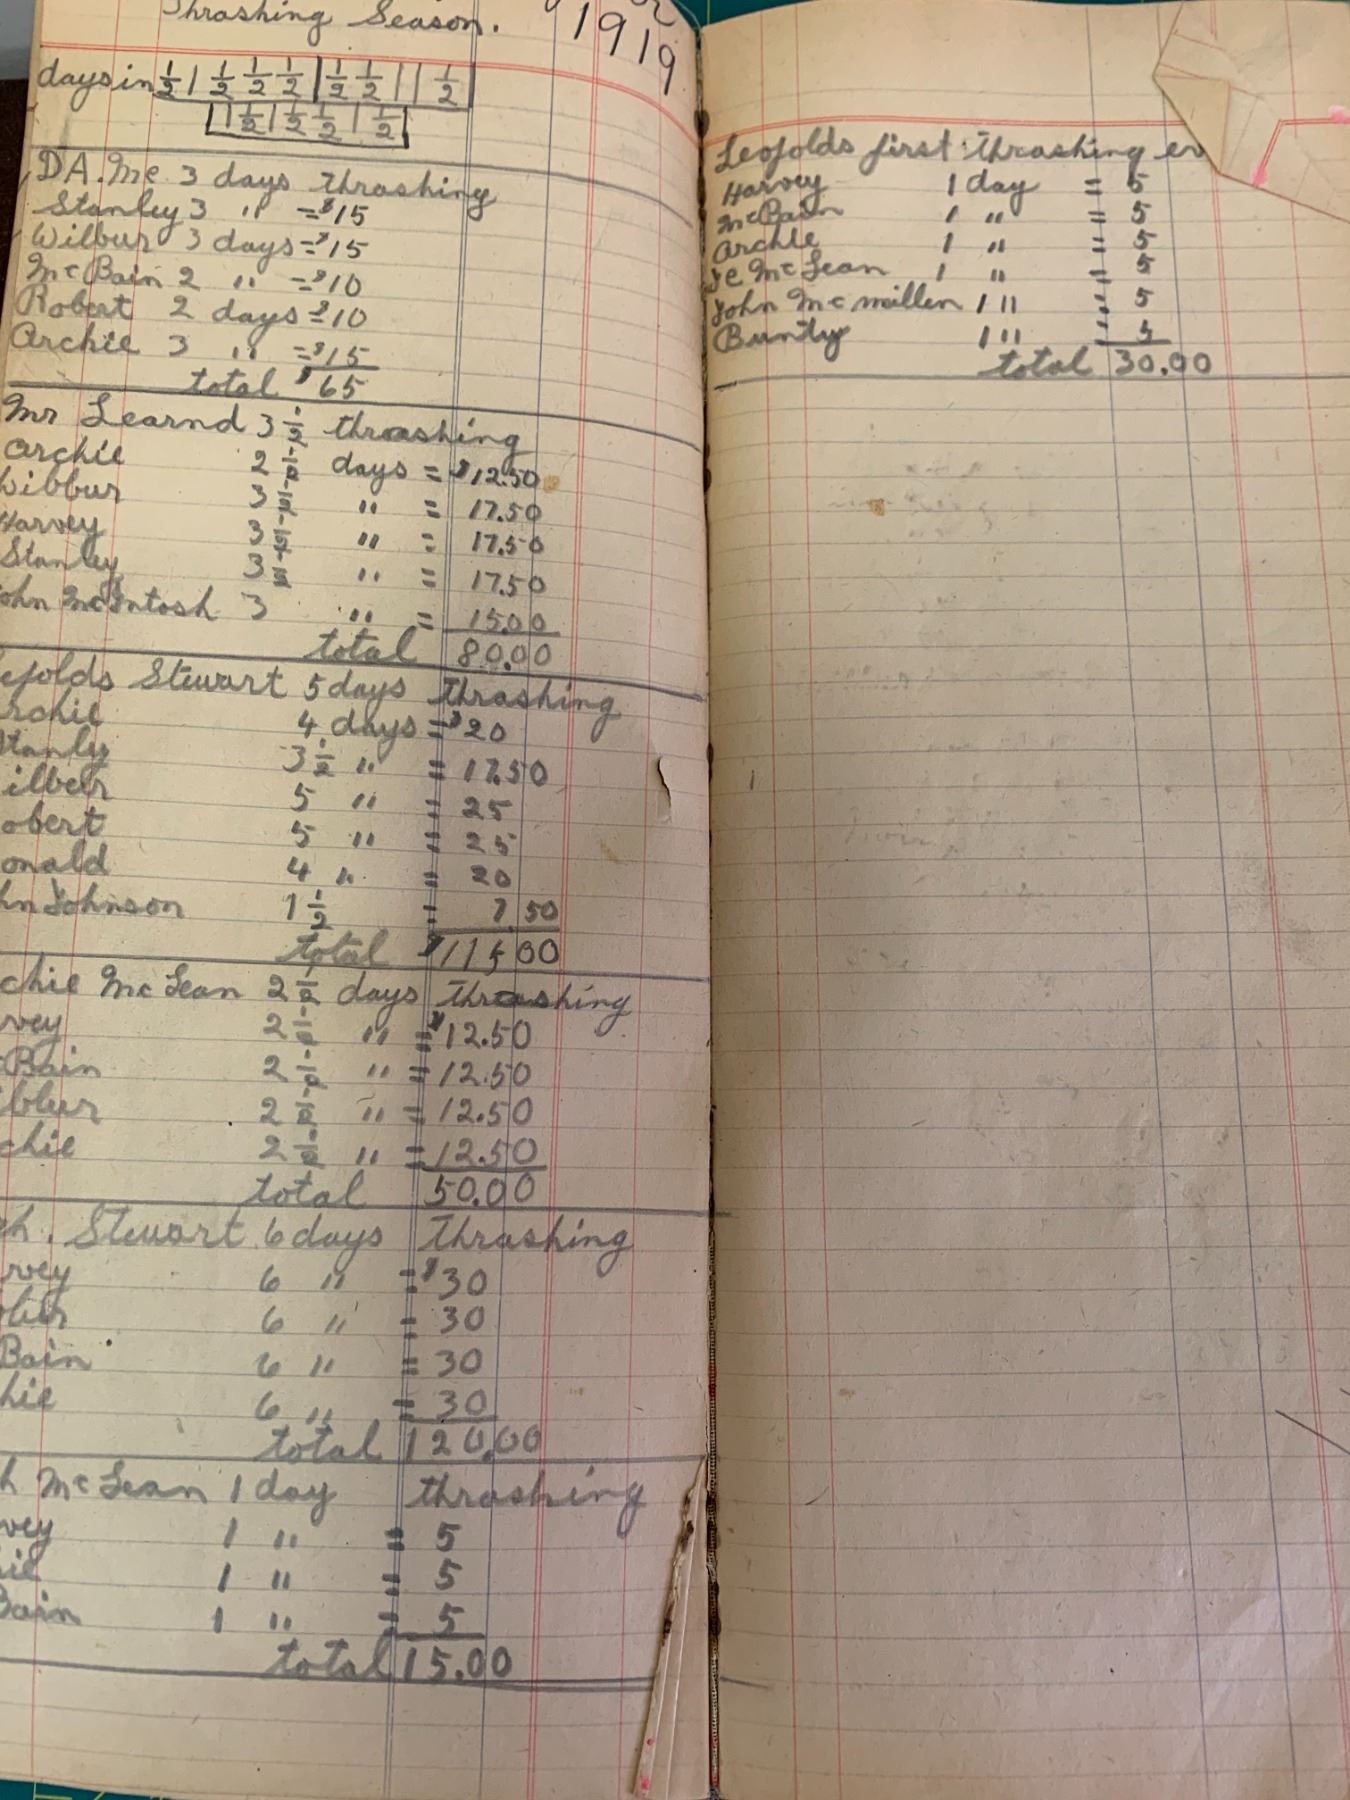 Thrashing Season. 1919
days in ½ | ½ ½ ½ | ½ ½ | | ½
| ½ | ½ ½ | ½
D.A. Mc 3 days thrashing
Stanley 3 " = $15
Wilbur 3 days = $15
McBain 2 " = $10
Robert 2 days = $10
Archie 3 " = $15
total $65
Mr Learnd 3 ½ thrashing
Archie 2 ½ days = $12.50
Wilbur 3 ½ " = 17.50
Harvey 3 ½ " = 17.50
Stanley 3 ½ " = 17.50
John McIntosh 3 " = 15.00
total 80.00
efolds Stewart 5 days thrashing
rchie 4 days = $20
Stanly 3 ½ " = 17.50
ilber 5 " = 25
obert 5 " = 25
onald 4 " = 20
hn Johnson 1 ½ = 7.50
total $115.00
chie McLean 2 ½ days thrashing
rvey 2 ½ " = $12.50
cBain 2 ½ " = 12.50
ilbur 2 ½ " = 12.50
chie 2 ½ " = 12.50
total 50.00
ch. Stewart 6 days thrashing
rvey 6 " = $30
6 " = 30
Bain 6 " = 30
hie 6 " = 30
total 120.00
h McLean 1 day thrashing
vey 1 " = 5
ie 1 " = 5
Bain 1 " = 5
total 15.00
Leofolds first thrashing
Harvey 1 day = 5
McBain 1 " = 5
Archie 1 " = 5
McLean 1 " = 5
John McMillen 1 " = 5
Bunty 1 " = 5
total 30.00